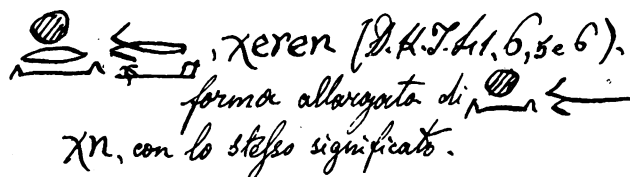 , χeren (D.H.I. 41, 6, 5 e 6).
forma allargata di
χn, con lo stesso significato.